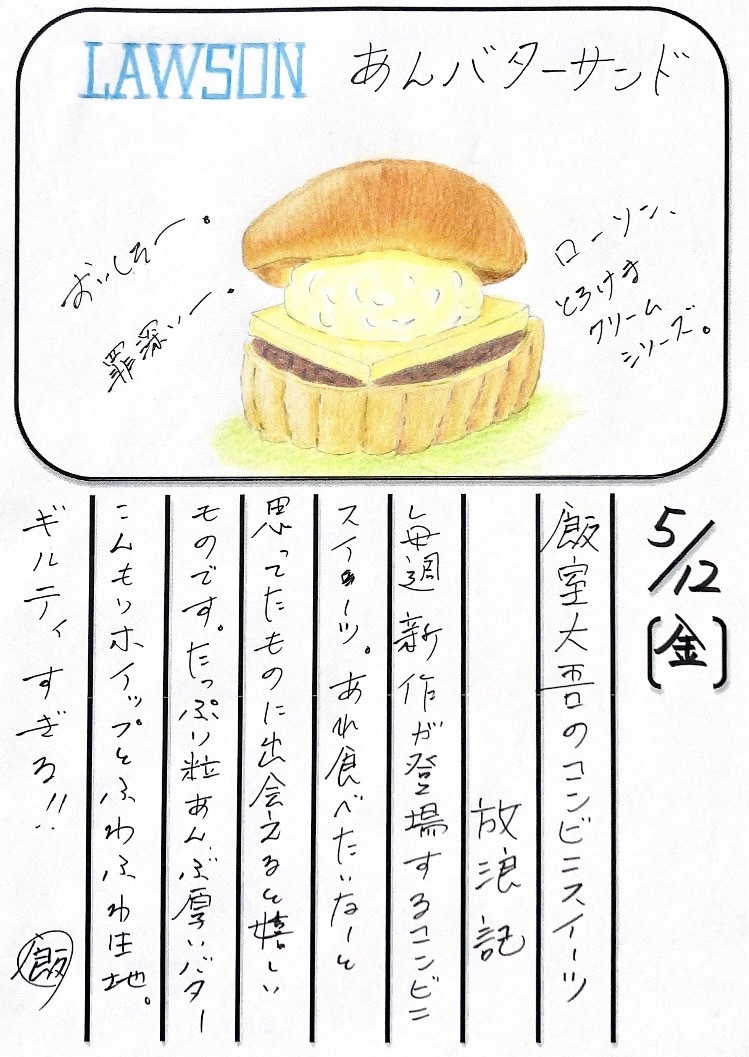 LAWSON あんバターサンド
おいしそー。
罪深いー。
ローソン、
とろけま
クリーム
シリーズ。
5/12
[金]
飯室大吾のコンビニスイーツ
放浪記
毎週新作が登場するコンビニ
スイーツ。あれ食べたいなーと
思ってたものに出会えると嬉しい
ものです。たっぷり粒あん、ぶ厚いバター
こんもりホイップとふわふわ生地。
ギルティすぎる!!
飯